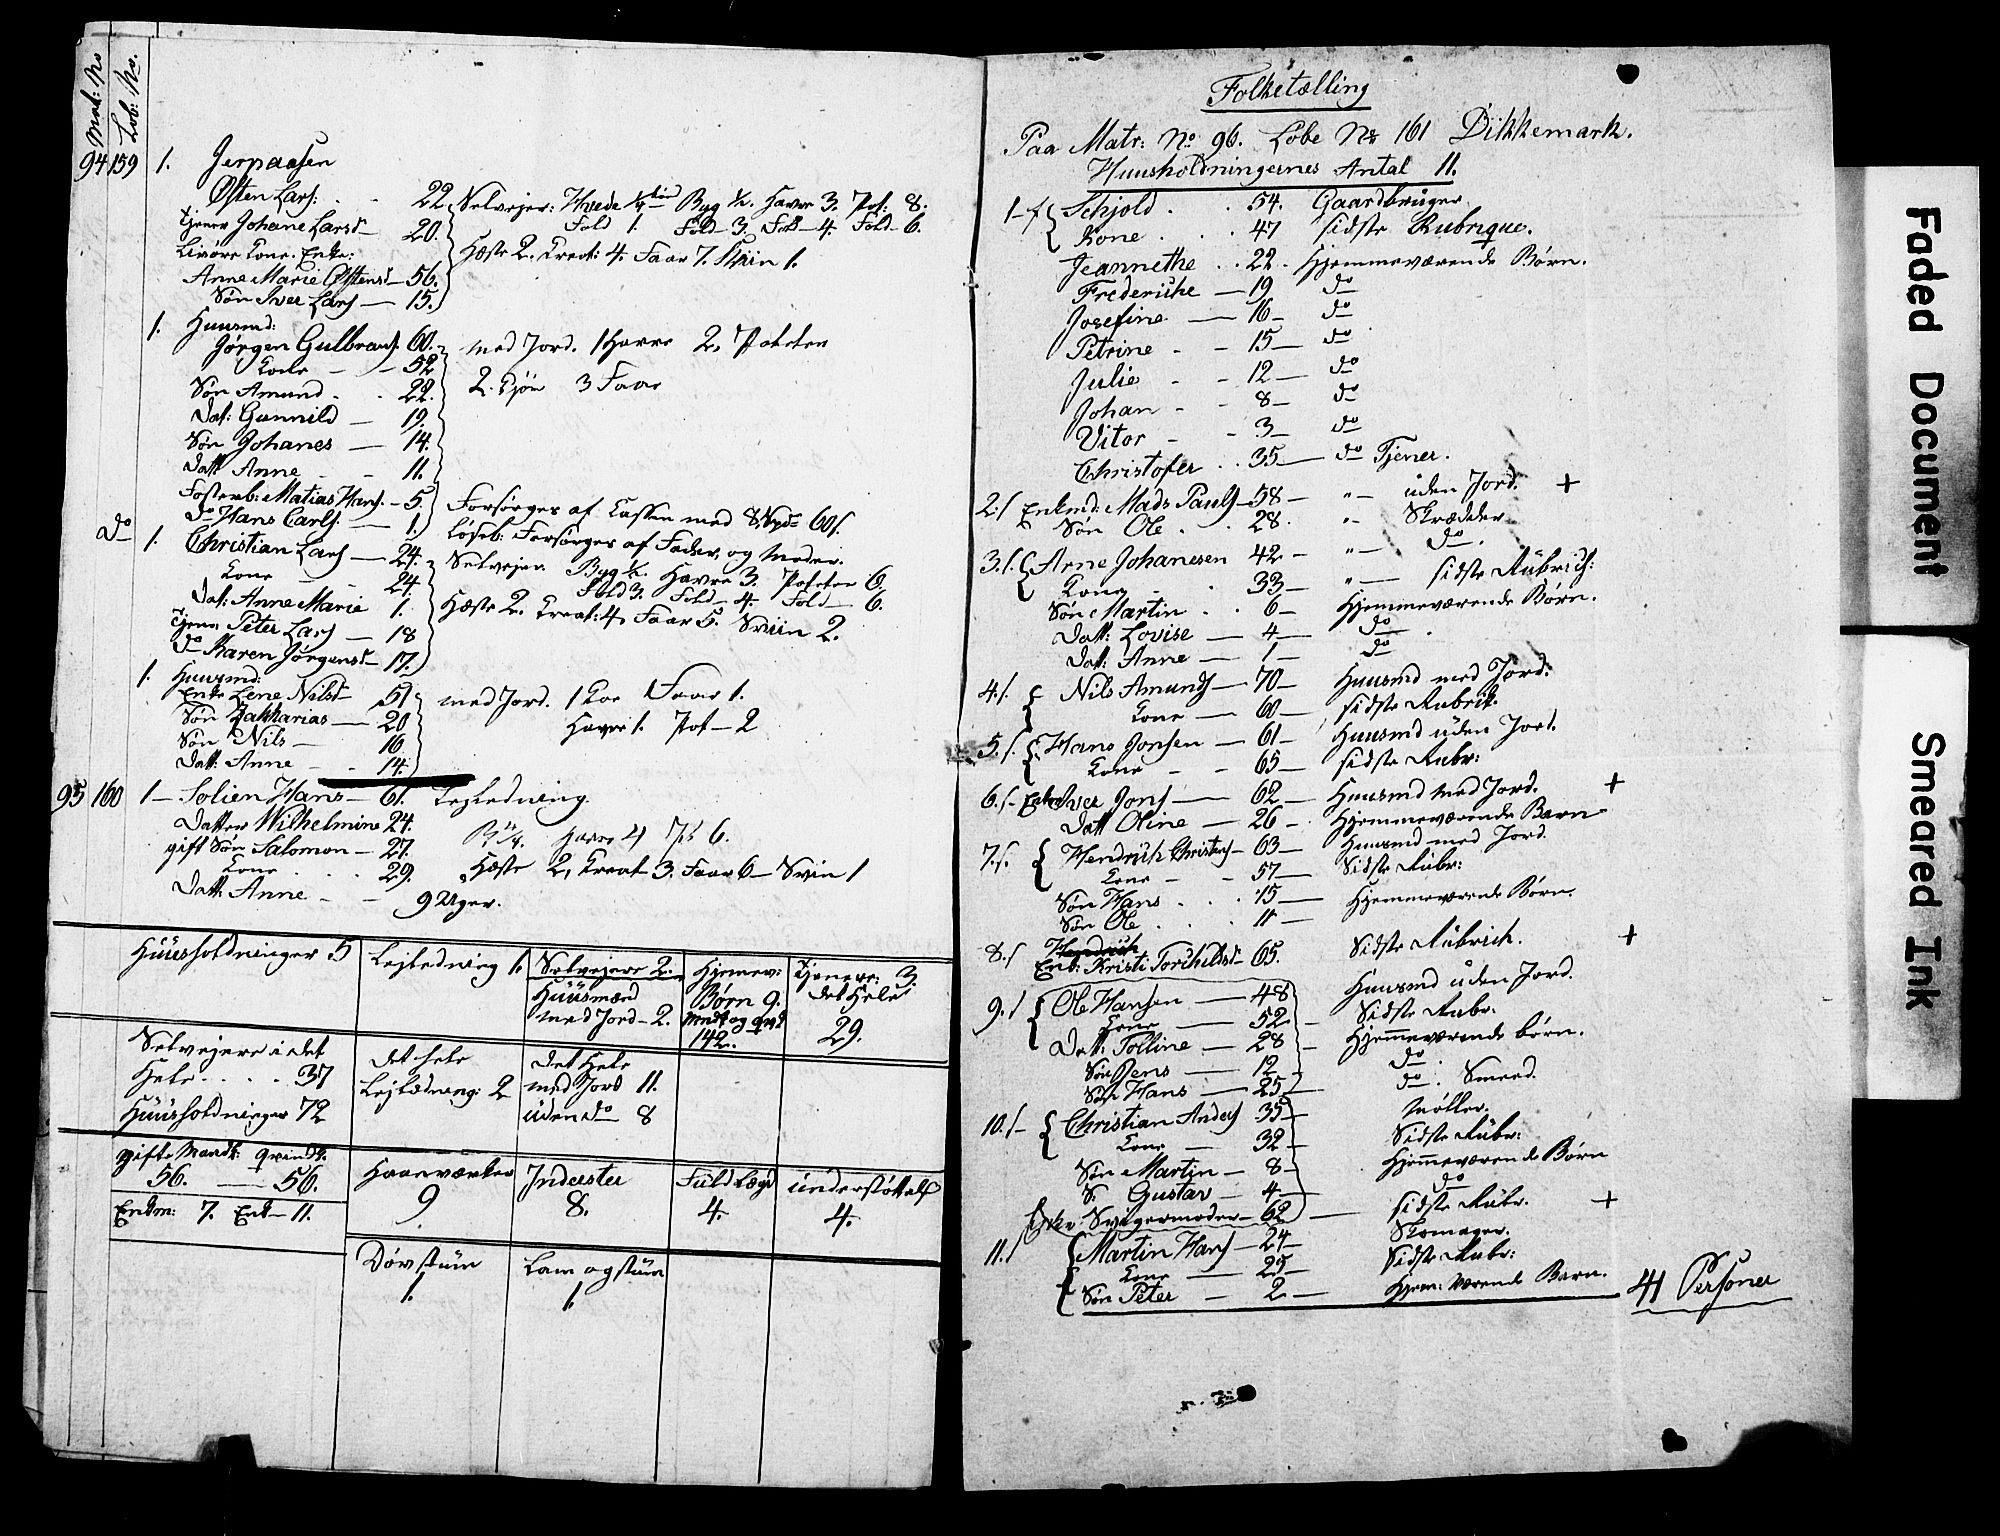 Mat: No
Løb: No.
94 159 1. Jerpaasen
Østen Lars: 22 Selvejer: Hvede 1/4 Byg 1/2. Havre 3. Pot: 8.
tjener Johane Larsd 20. Fold 1. Fold 3. Fold 4. Fold 6.
Livøre Kone. Enke: Heste 2. Creat: 4. Faar 7. Sviin 1.
Anne Marie Østensd 56.
Søn Iver Lars 15.
1. Huusmd:
Jørgen Gulbrans. 60. med Jord. Havre 2. Poteter
Kone 52
Søn Amund 22. 2. Kjør 3 Faar
Dat: Gunnild 19.
Søn Johanes 14.
Datt Anne 11.
Fosterb: Matias Hans. 5. Forsørges af Cassen med 8 Spd 60 s.
do Hans Carls. 1. Løseb: Forsørges af Fader, og Moder.
do 1. Christian Lars 24. Selvejer. Byg 1/2. Havre 3. Poteter 6
Kone 24. Fold 3. Fold 4. Fold 6.
Dat: Anne Marie 1. Heste 2. Creat: 4. Faar 5. Sviin 2.
Tjener Peter Lars 18
do Karen Jørgensd 17.
1. Huusmd:
Enke Lene Nilsd 51 med Jord. 1 Koe Faar 1.
Søn Zakkarias 20 Havre 1. Pot 2
Søn Nils 16
Datt: Anne 14.
95 160 1 Solien Hans 61. Lejledning.
Datter Wilhelmine 24. 1/4. Havre 4 Pt 6.
gift Søn Salomon 27.
Kone 29. Heste 2, Creat 3. Faar 6 Sviin 1
Datt: Anne 9 Uger.
Huusholdninger 5 Lejledning 1. Selvejere 2. Hjemev: Tjenere: 3.
Huusmænd Børn 9. det Hele
med Jord 2. Mandk og qvd 29.
142.
Selvejere i det det hele det Hele
Hele 37 Lejledning: 2 med Jord 11.
Huusholdninger 72 uden do 8
gifte Mandk: qvindk. Haarværker Inderster Fuld Lægd understøttelse
56. 56. 9 8. 4. 4.
Enkm: 7. Enk 11.
Døvstum Lam og stum
1. 1.
Folketælling
Paa Matr: No 96. Løbe No 161 Dikkemark.
Huusholdningernes Antal 11.
1 Schjold 54. Gaardbruger
Kone 47 sidste Rubrique.
Jeannethe 22. Hjemmeværende Børn.
Frederikke 19 do
Josefine 16 do
Petrine 15 do
Julie 12 do
Johan 8 do
Vitor 3 do
Christofer 35 do Tjener.
2. Enkmd: Mads Pauls 58 " uden Jord. +
Søn Ole 28. " Skrædder
3. Arne Johanesen 42 " do.
Kone 33 " sidste Rubrich:
Søn Martin 6 Hjemmeværende Børn.
Datt: Lovise 4 do
Dat: Anne 1 do
4. Nils Amunds 70 Huusmd med Jord.
Kone 60 sidste Rubrik.
5. Hans Jonsen 61 Huusmd uden Jord.
Kone 65 sidste Rubr:
6. Enkm Iver Jons 62 Huusmd med Jord. +
Datt Oline 26 Hjemmeværende Barn
7. Hendrich Christens 63 Huusmd med Jord.
Kone 57 Sidste Rubr:
Søn Hans 15 Hjemmeværende Børn.
Søn Ole 11
8. Hendrich
Enk: Kristi Torchildsd 65. Sidste Rubrich. +
9. Ole Hansen 48 Huusmd uden Jord.
Kone 52 Sidste Rubr.
Datt: Tolline 28 Hjemmeværende børn.
Søn Jens 12 do
Søn Hans 25 do. Smeed.
10. Christian Anders 35 Møller.
Kone 32 Sidste Rubr:
Søn Martin 8 Hjemmeværende Børn
S. Gustav 4 do
Enke Svigermoder 62 sidste Rubr. +
11. Martin Hans 24 Skomager.
Kone 25 Sidste Rubr:
Søn Peter 2 Hjem: værende Barn. 41 Personer
Faded Document
Smeared Ink